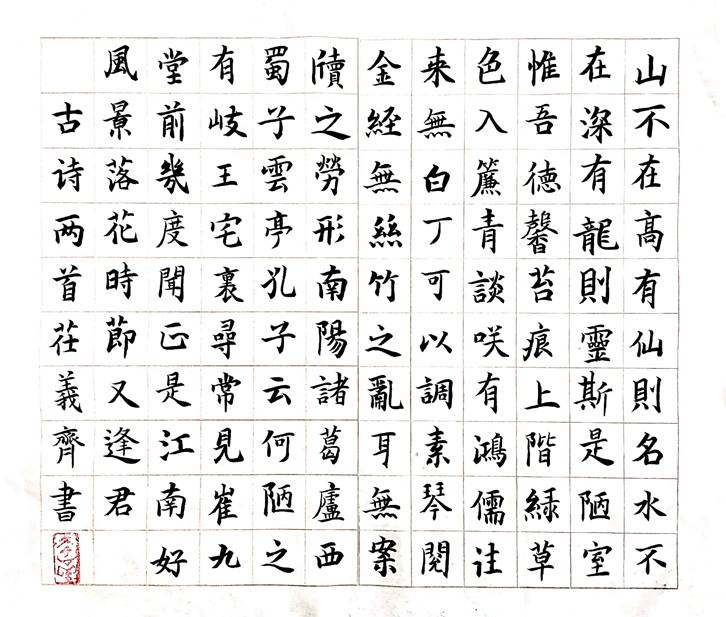 山不在高有仙則名水不
在深有龍則靈斯是陋室
惟吾德馨苔痕上階緑草
色入簾青談咲有鴻儒往
来無白丁可以調素琴閱
金経無絲竹之亂耳無案
牘之勞形南陽諸葛廬西
蜀子雲亭孔子云何陋之
有岐王宅裏尋常見崔九
堂前幾度聞正是江南好
風景落花時節又逢君
古诗两首荏義齊書